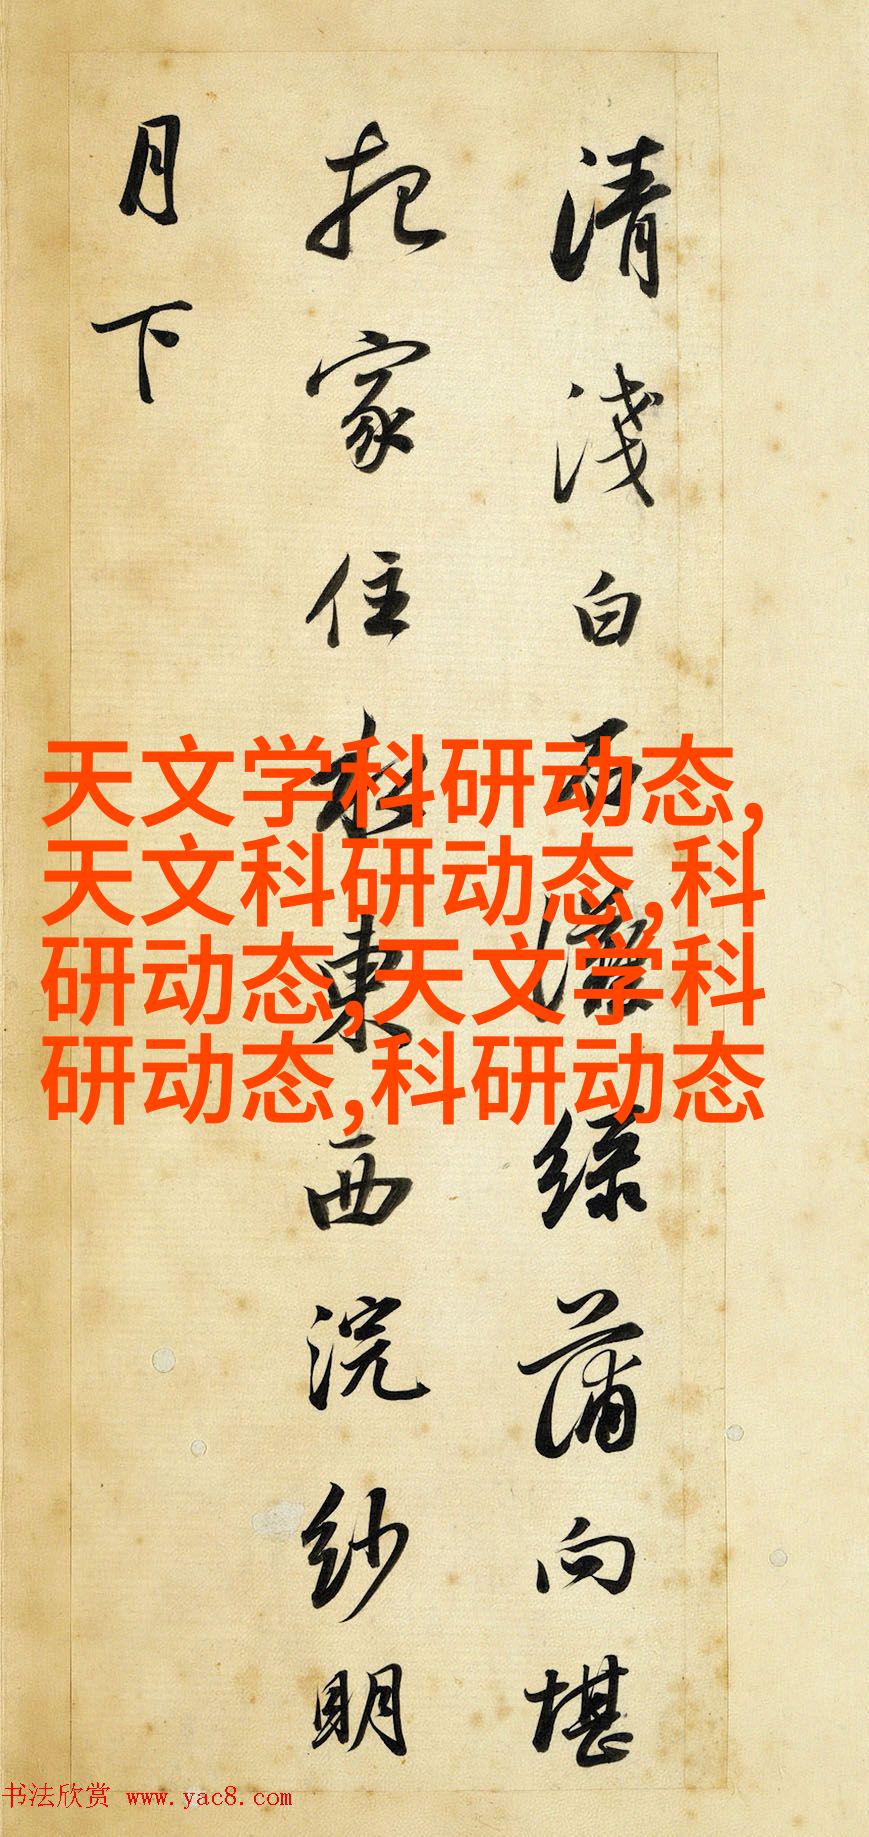 清淺白石灘綠蒲向堪
把家住水東西浣紗明
月下
天文学科研动态,
天文科研动态,科
研动态,天文学科
研动态,科研动态
书法欣赏 www.yac8.com